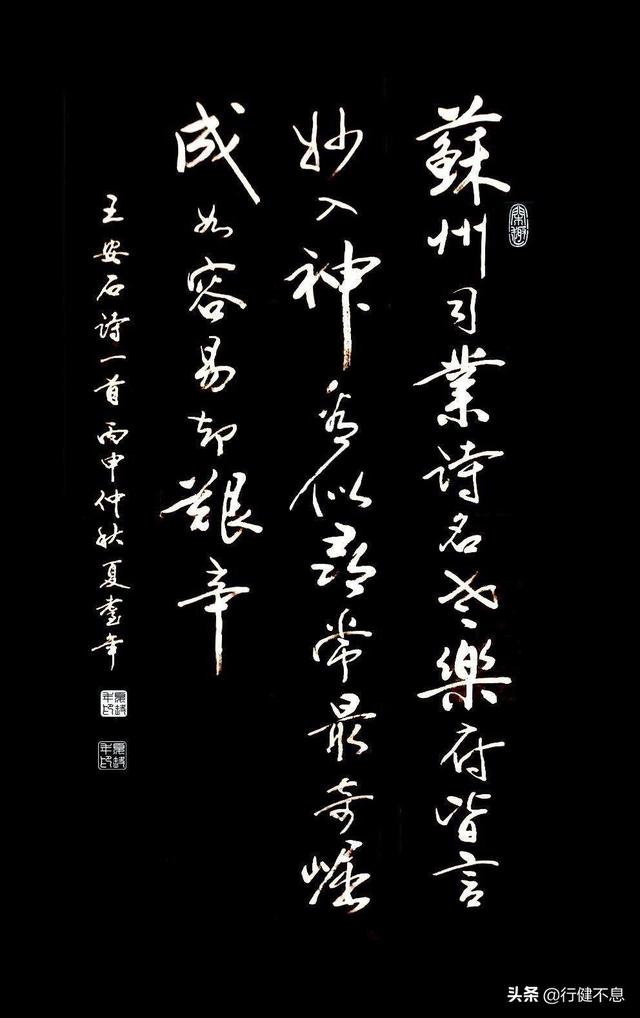 蘇州司業詩名老樂府皆言
妙入神看似尋常最奇崛
成如容易却艱辛
王安石詩一首丙申仲秋夏奎年
头条 @行健不息